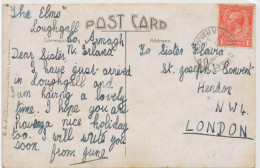 "The Elms"
Loughgall
Co. Armagh
N. Ireland
POST CARD
Dear Sister
I have just arrived
in Loughgall and
I am having a lovely
time. I hope you are
having a nice holiday
too. I will write you
soon. from June
To Sister Flavia
St. Joseph's Convent
Hendon
N W 4
LONDON